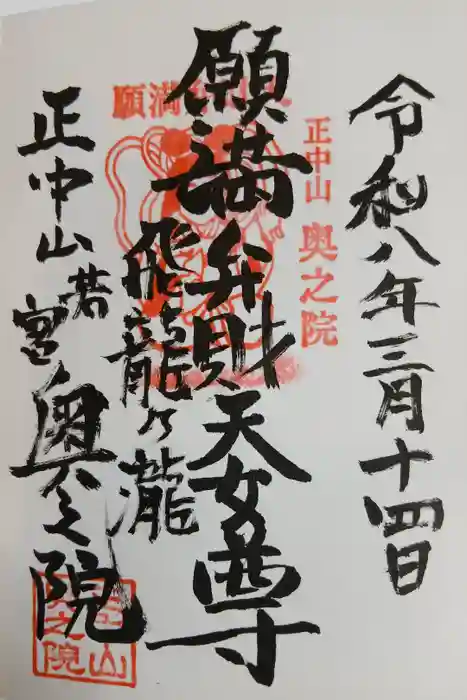 令和八年三月十四日
正中山 奥之院
願満
願満弁財天女尊
飛龍ヶ瀧
正中山若宮
奥之院